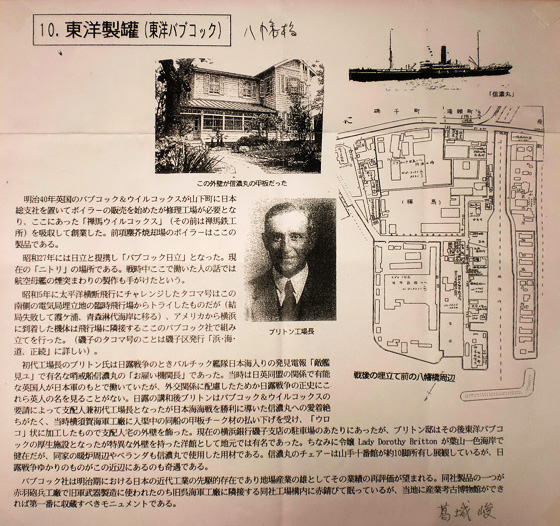 10. 東洋製罐（東洋バブコック）
八幡橋
「信濃丸」
磯子町
この外壁が信濃丸の甲板だった
明治40年英国のバブコック＆ウイルコックスが山下町に日本
総支社を置いてボイラーの販売を始めたが修理工場が必要とな
り、ここにあった「禅馬ウイルコックス」（その前は禅馬鉄工
所）を吸収して創業した。前項塵芥焼却場のボイラーはここの
製品である。
昭和27年には日立と提携し「バブコック日立」となった。現
在の「ニトリ」の場所である。戦時中ここで働いた人の話では
航空母艦の煙突まわりの製作も手がけたという。
昭和5年に太平洋横断飛行にチャレンジしたタコマ号はこの
南側の電気局埋立地の臨時飛行場からトライしたものだが（結
局失敗して霞ケ浦、青森淋代海岸に移る）、アメリカから横浜
に到着した機体は飛行場に隣接するここのバブコック社で組み
立てを行った。（磯子のタコマ号のことは磯子区発行「浜・海・
道、正続」に詳しい）。
ブリトン工場長
戦後の埋立て前の八幡橋周辺
初代工場長のブリトン氏は日露戦争のときバルチック艦隊日本海入りの発見電報「敵艦
見ユ」で有名な哨戒船信濃丸の「お雇い機関長」であった。当時は日英同盟の関係で有能
な英国人が日本軍のもとで働いていたが、外交関係に配慮したためか日露戦争の正史にこ
れら英人の名を見ることがない。日露の講和後ブリトンはバブコック＆ウイルコックスの
要請によって支配人兼初代工場長となったが日本海海戦を勝利に導いた信濃丸への愛着絶
ちがたく、当時横須賀海軍工廠に入渠中の同船の甲板チーク材の払い下げを受け、「ウロ
コ」状に加工したもので支配人宅の外壁を飾った。現在の横浜銀行磯子支店の駐車場のあたりにあったが、ブリトン邸はその後東洋バブ
コックの厚生施設となったが特異な外壁を持った洋館として地元では有名であった。ちなみに令嬢 Lady Dorothy Britton が葉山一色海岸で
健在だが、同家の暖炉周辺やベランダも信濃丸で使用した用材である。信濃丸のチェアーは山手十番館が約10脚所有し展観しているが、日
露戦争ゆかりのものがこの近辺にあるのも奇遇である。
バブコック社は明治期における日本の近代工業の先駆的存在であり地場産業の雄としてその業績の再評価が望まれる。同社製品の一つが
赤羽砲兵工廠で旧軍武器製造に使われたのち旧呉海軍工廠に隣接する同社工場構内に赤錆びて眠っているが、当地に産業考古博物館ができ
れば第一番に収蔵すべきモニュメントである。
葛城 峻